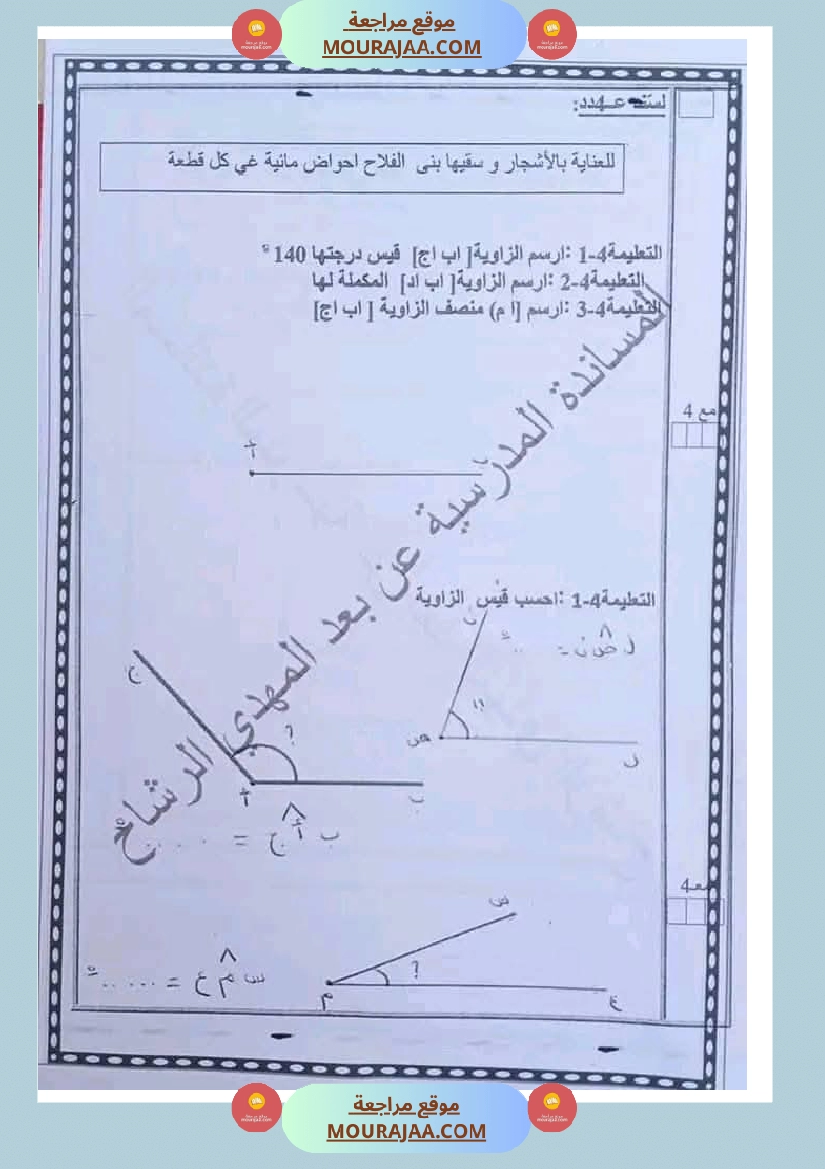 موقع مراجعة
MOURAJAA.COM
لسند عـ4ـدد:
للعناية بالأشجار و سقيها بنى الفلاح احواض مائية غي كل قطعة
التعليمة4-1 :ارسم الزاوية[ اب اج] قيس درجتها 140 °
التعليمة4-2 :ارسم الزاوية[ اب اد] المكملة لها
التعليمة4-3 :ارسم [ا م) منصف الزاوية [ اب اج]
مع 4
أ
المساندة المدرسية عن بعد المهدي الرشائح
التعليمة4-1 :احسب قيس الزاوية
ن
ل ض ن = .. °
ج
?
ض
ل
أ
ب
ب أ ج = ....
معـ4
س
?
س م ع = ..... °
م
ع
موقع مراجعة
MOURAJAA.COM